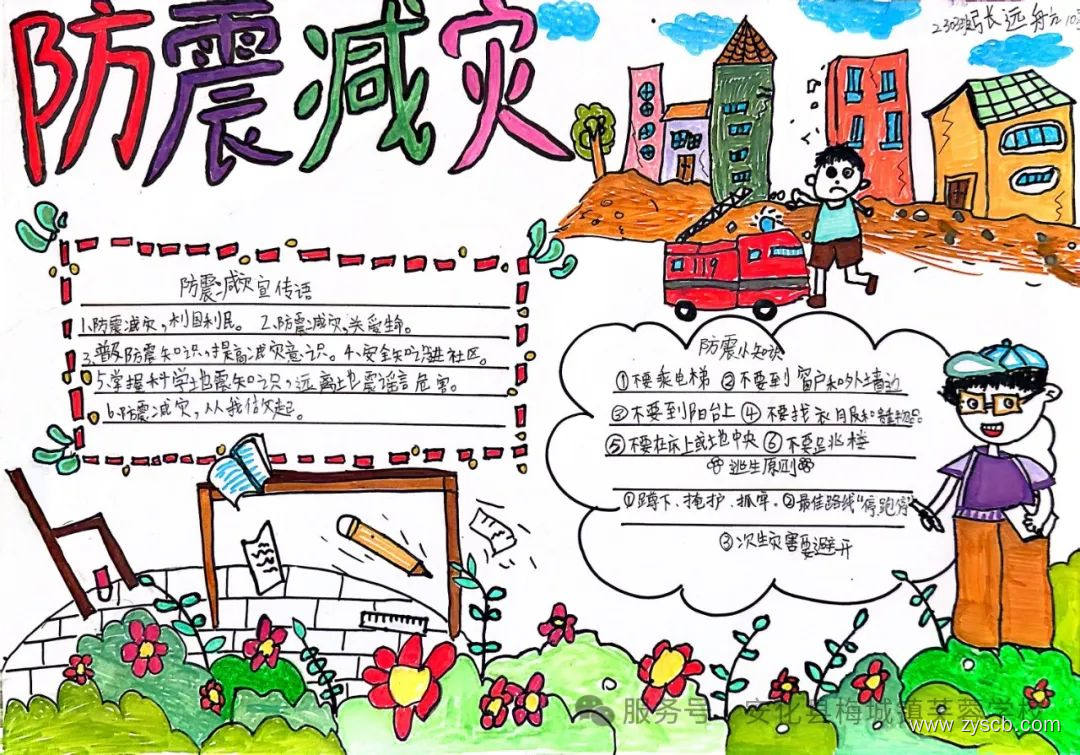 防震减灾
防震减灾宣传语
1.防震减灾,利国利民。 2.防震减灾,关爱生命。
3.普及防震知识,提高减灾意识。4.安全知识进社区。
5.掌握科学地震知识,远离地震谣言危害。
6.防震减灾,从我做起。
119
防震小知识
①不要乘电梯 ②不要到窗户和外墙边
③不要到阳台上 ④不要找衣服和
⑤不要在床上或地中央 ⑥不要跳楼
逃生原则
①蹲下、掩护、抓牢。②最佳路线"停跑停"
③次生灾害要避开
服务号 安化县梅城镇芙蓉学校
www.zyscb.com